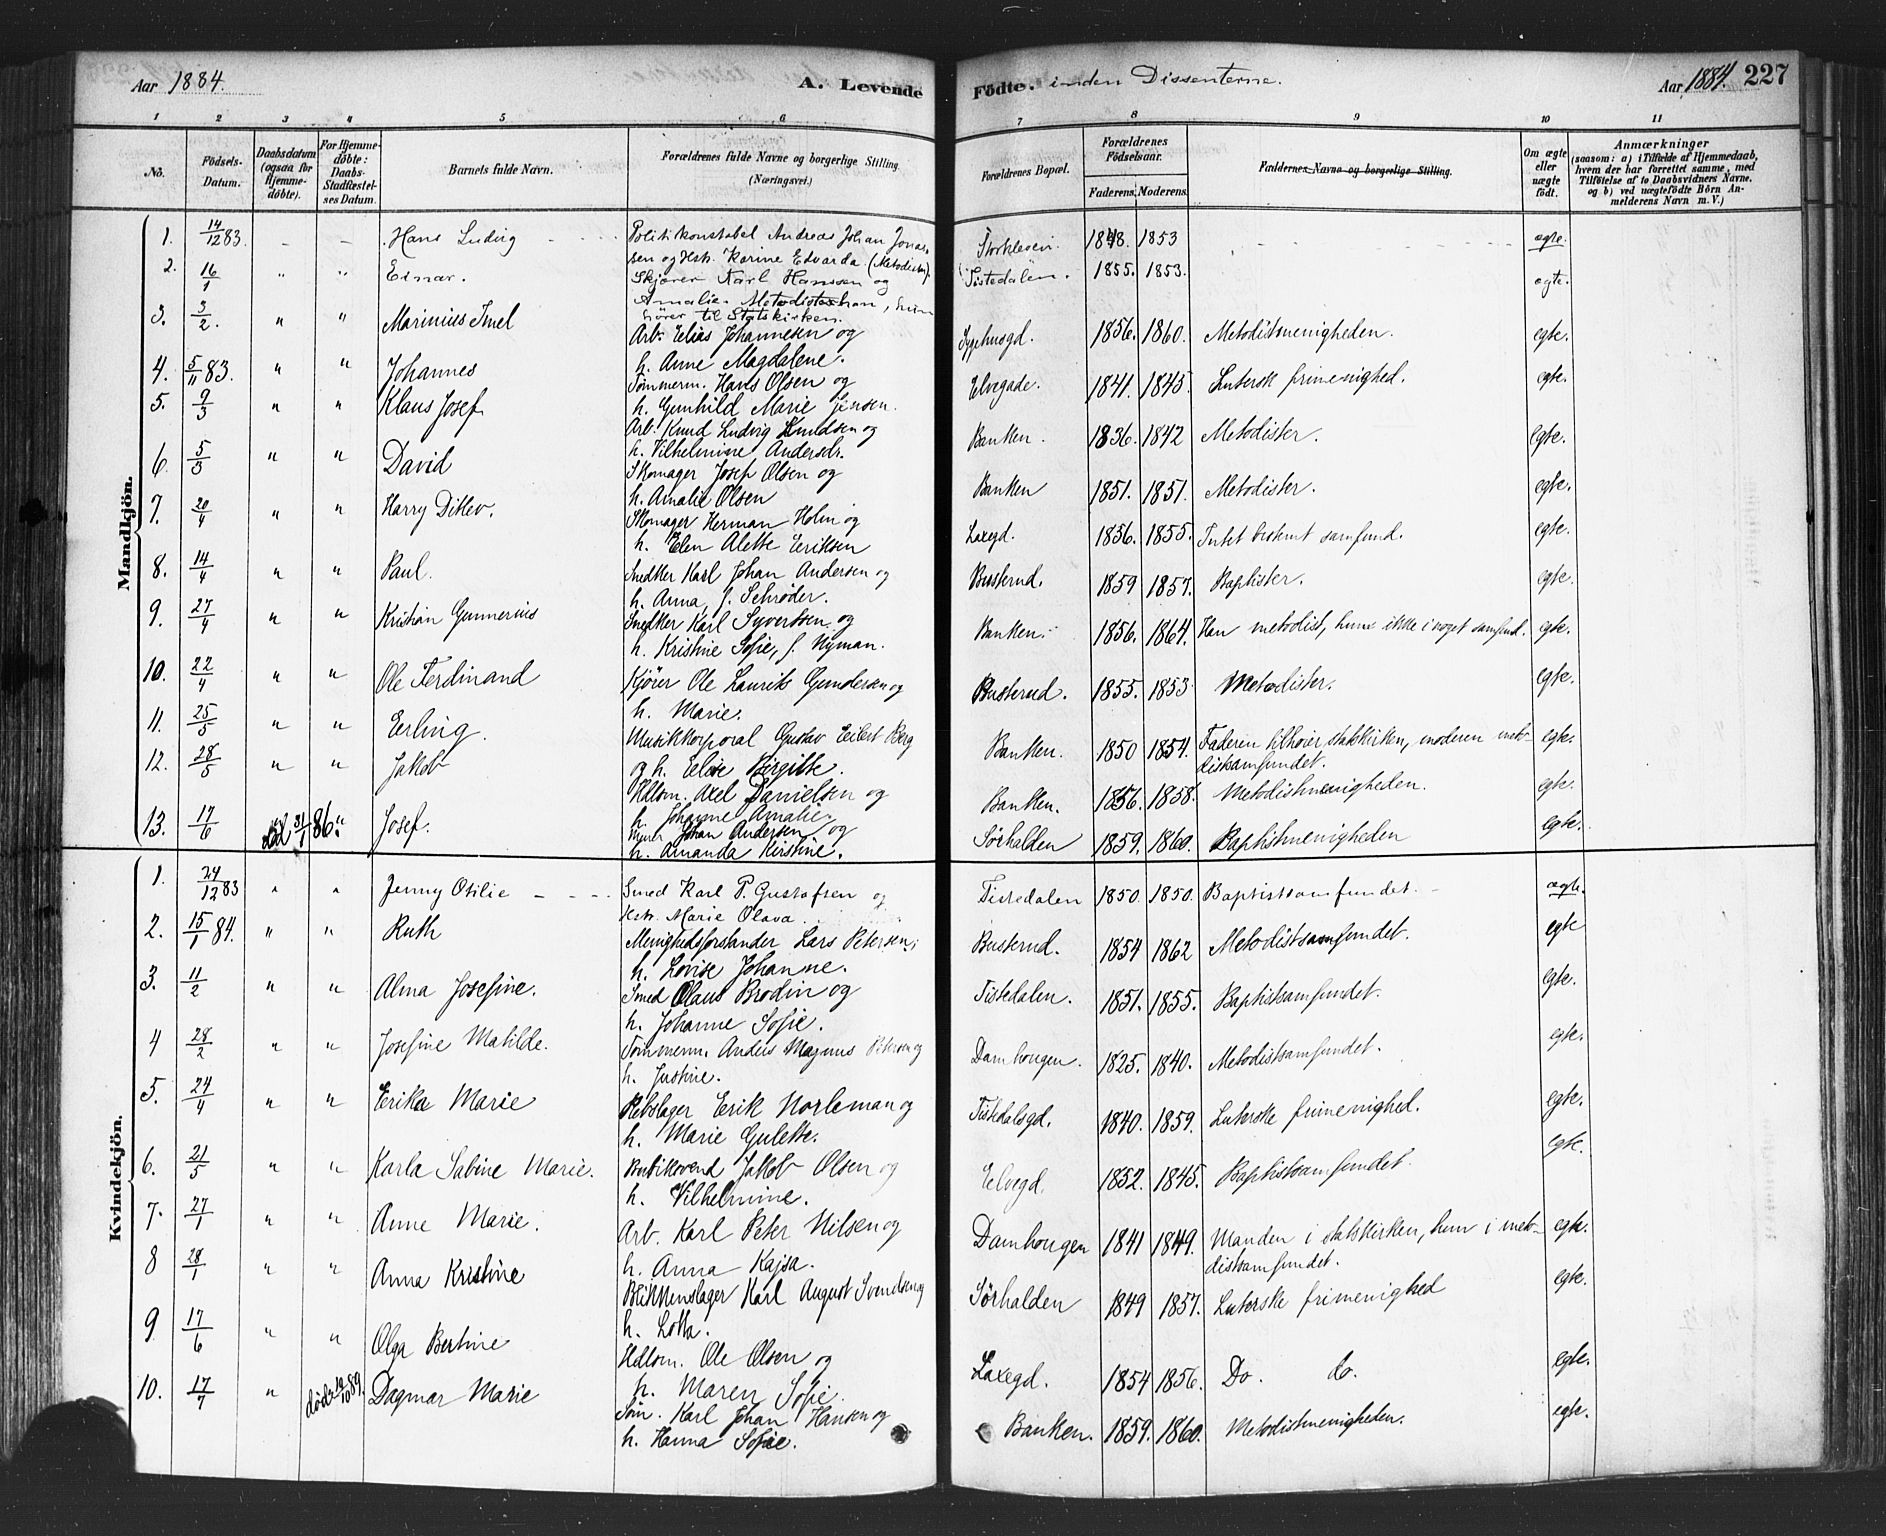 Aar 1884. A. Levende Fødte. inden Dissenterne. Aar 1884. 227
1 2 3 4 5 6 7 8 9 10 11
No. Fødsels-Datum. Daabsdatum (ogsaa for Hjemme-døbte). For Hjemme-døbte: Daabs-Stadfæstel-ses Datum. Barnets fulde Navn. Forældrenes fulde Navne og borgerlige Stilling. (Næringsvei.) Forældrenes Bopæl. Forældrenes Fødselsaar. Faderens. Moderens. Faddernes Navne og borgerlige Stilling. Om ægte eller uægte født. Anmærkninger (saasom: a) i Tilfælde af Hjemmedaab, hvem der har forrettet samme, med Tilføielse af to Daabsvidners Navne, og b) ved uægtefødte Børn Anmelderens Navn m. V.)
Mandkjön.
1. 14/12 83. – – Hans Ludvig Politikonstabel Andreas Johan Jonas- 1848. 1853 ægte.
sen og Hstr. Karine Edvarda (Metodister).
2. 16/1 " " Einar. Skjører Karl Hanssen og Tistedalen. 1855. 1853. ægte.
Amalie. Metodister han, hun
hører til Statskirken.
3. 3/2. " " Marinius Imel Arb. Elias Johannesen og Sygehusgd. 1856. 1860. Metodistmenigheden. egte.
h. Anne Magdalene.
4. 5/11 83. " " Johannes Tømmerm. Hans Olsen og Elvegade. 1841. 1845. Lutersk frimenighed. egte.
h. Gunhild Marie Jensen.
5. 9/3 " " Klaus Josef Arb. Knud Ludvig Knudsen og Banken. 1836. 1842 Metodister. egte.
h. Vilhelmine Andersdr.
6. 5/3 " " David Skomager Josef Olsen og Banken 1851. 1851. Metodister. egte.
h. Amalie Olsen
7. 20/4 " " Harry Ditlev. Skomager Herman Holm og Laxegd. 1856. 1855. Intet bestemt samfund. egte.
h. Elen Alette Eriksen
8. 14/4 " " Paul. Snedker Karl Johan Andersen og Busterud. 1859 1857. Baptister. egte.
h. Anna, f. Schrøder.
9. 27/4 " " Kristian Gunnerius Snedker Karl Syvertsen og Banken. 1856. 1864. Han metodist, hun ikke i noget samfund. egte.
h. Kristine Sofie, f. Nyman.
10. 22/4 " " Ole Ferdinand Kjører Ole Laurits Gundersen og Busterud. 1855. 1853 Metodister. egte.
h. Marie.
11. 25/5 " " Erling. Musikkorporal Gustav Eilert Berg Banken. 1850 1854. Faderen tilhører statskirken, moderen meto-
og h. Elise Birgitte. distsamfundet. egte.
12. 28/5 " " Jakob Hdlsm. Axel Danielsen og Banken. 1856. 1858. Metodistmenigheden. egte.
h. Johanne Amalie.
13. 17/6 31/1 86. " Josef. Murer Johan Andersen og Sørhalden 1859. 1860. Baptistmenigheden egte.
h. Amanda Kirstine.
Kvindekjön.
1. 24/12 83 " " Jenny Otilie Smed Karl P. Gustafsen og Tistedalen 1850. 1850. Baptistsamfundet. ægte.
Hstr. Marie Olava.
2. 15/1 84. " " Ruth Menighedsforstander Lars Petersen, Busterud. 1854 1862 Metodistsamfundet. egte
h. Lovise Johanne.
3. 11/2 " " Alma Josefine. Smed Olaus Brodin og Tistedalen. 1851. 1855. Baptistsamfundet. egte.
h. Johanne Sofie.
4 28/2 " " Josefine Matilde. Tømmerm. Anders Magnus Petersen og Damhougen. 1825. 1840. Metodistsamfundet. egte.
h. Justine.
5. 24/4 " " Erika Marie Rebslager Erik Norleman og Tistedalsgd. 1840. 1859. Luterske frimenighed. egte.
h. Marie Gulette.
6. 21/5 " " Karla Sabine Marie. Jakob Olsen og Elvegd. 1852. 1845. Baptistsamfundet. egte.
h. Vilhelmine.
7. 27/1 " " Anne Marie. Arb. Karl Peter Nilsen og Damhougen 1841 1849. Manden i statskirken, hun i meto-
h. Anna Kajsa. distsamfundet. egte.
8 28/1 " " Anna Kristine Blikkenslager Karl August Svendsen og Sørhalden 1849 1857. Luterske frimenighed egte.
h. Lotta.
9 17/6 " " Olga Bertine Hdlsm. Ole Olsen og Laxegd. 1854 1856. Do. do. egte.
h. Maren Sofie.
10. 17/7 " død 12/10 89. Dagmar Marie Søm. Karl Johan Hansen og Banken. 1859. 1860. Metodistmenigheden. egte.
h. Hanna Sofie.